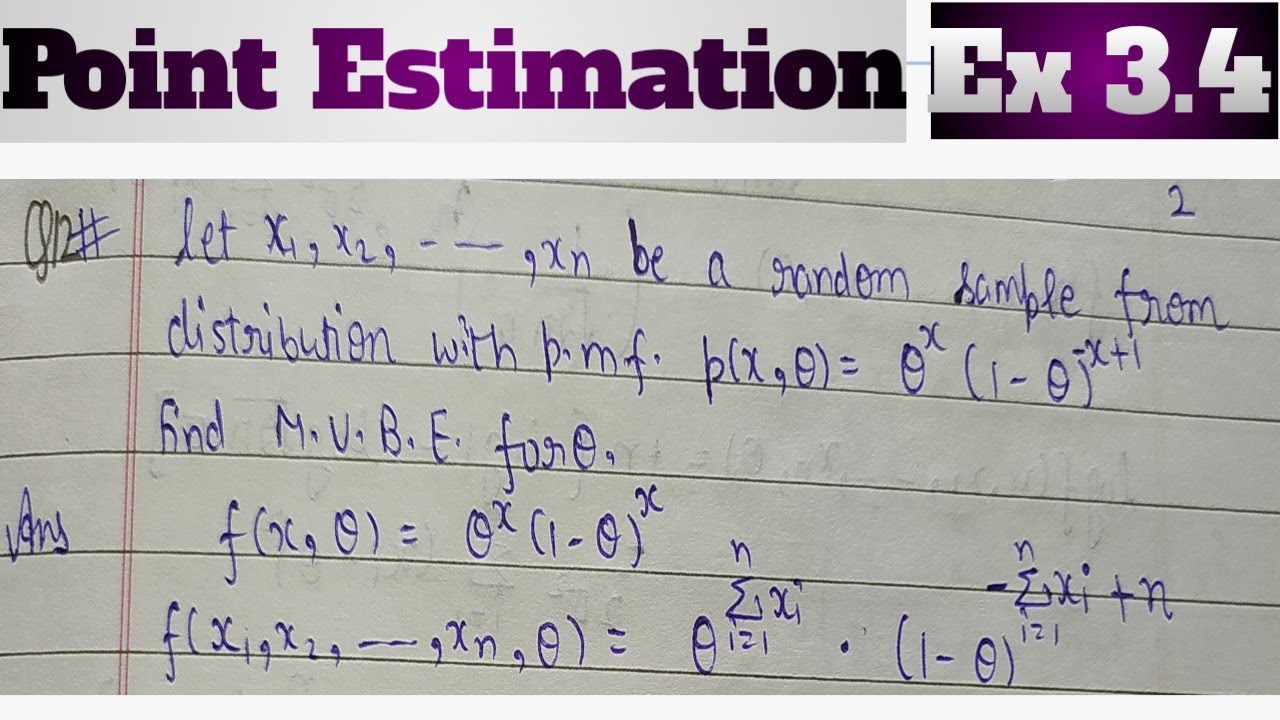 Point Estimation Ex 3.4
2
Q12# let x₁, x₂, - —, xn be a random sample from
distribution with p.m.f. p(x, θ) = θ^x (1-θ)^-x+1
find M.V.B.E. for θ.
Ans f(x, θ) = θ^x (1-θ)^x
f(x₁, x₂, - —, xn, θ) = θ^Σ_{i=1}^{n} xi · (1-θ)^-Σ_{i=1}^{n} xi + n